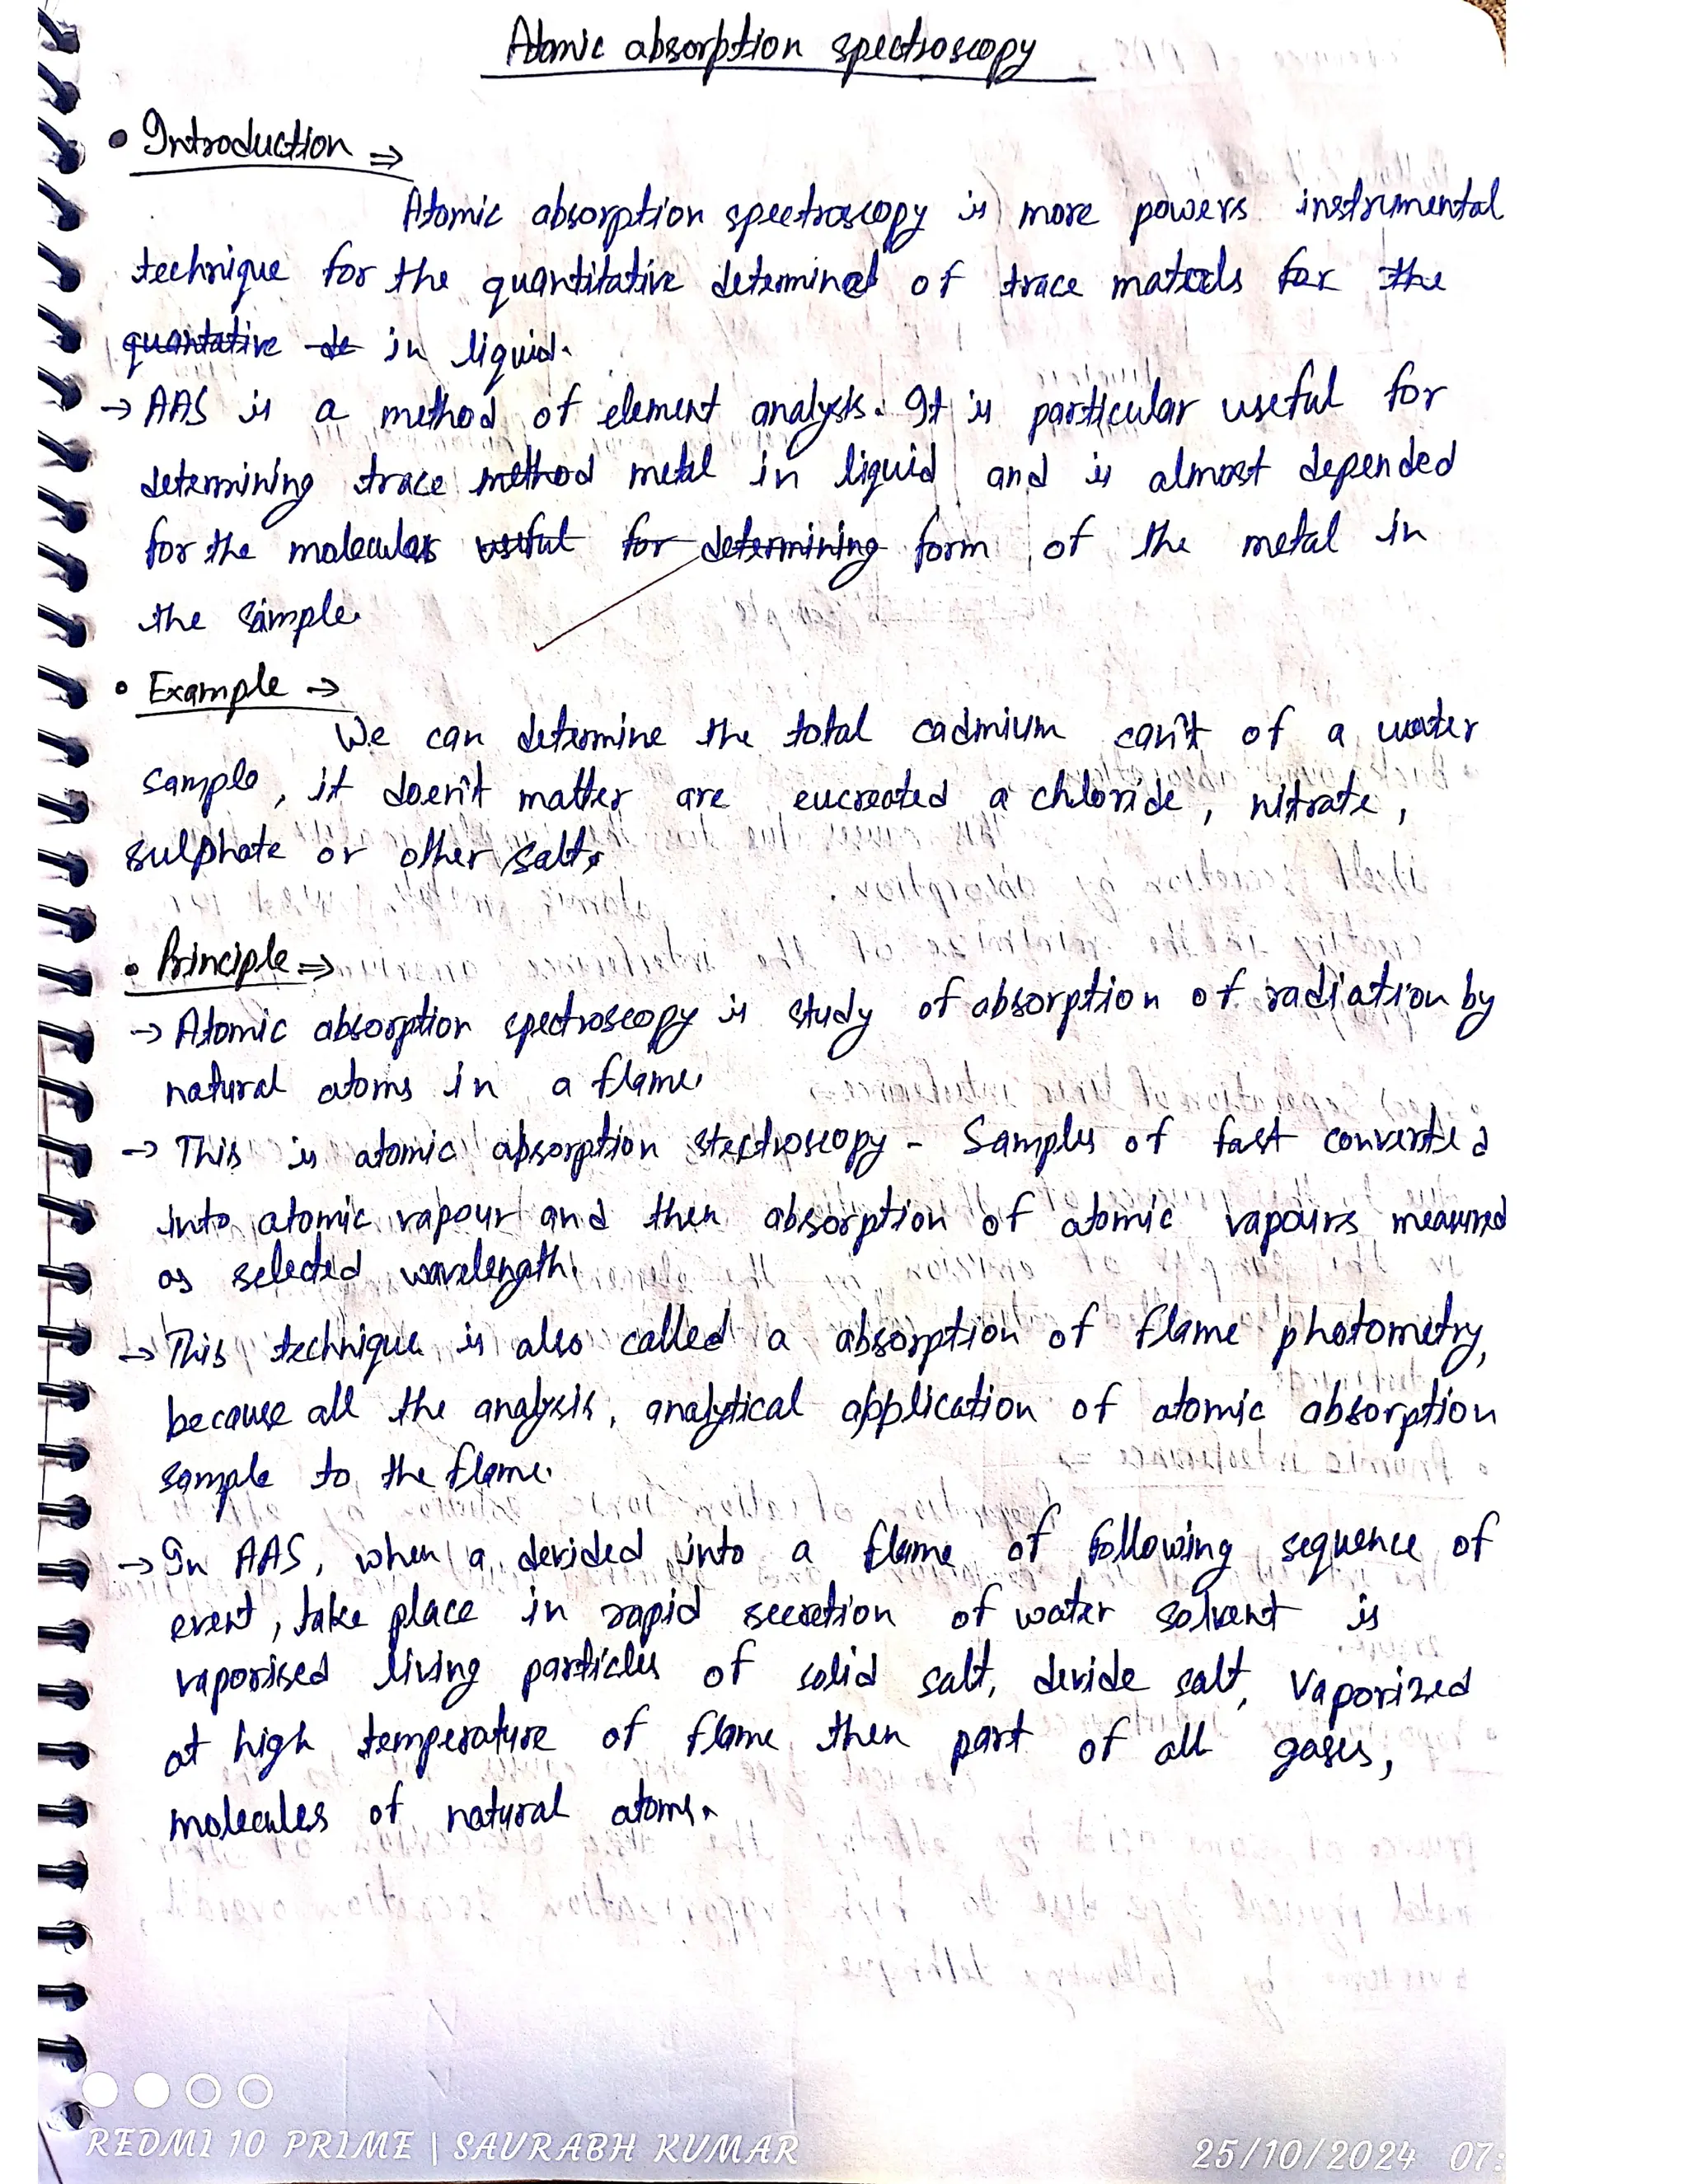 Atomic absorption spectroscopy
• Introduction ⇒
Atomic absorption spectroscopy is more powers instrumental
technique for the quantitative determined of trace for the
quantative de in liquid.
→ AAS is a method of element analysis. It is particular useful for
determining trace method metal in liquid and is almost depended
for the molecular useful for determining form of the metal in
the sample.
• Example →
We can determine the total cadmium can't of a water
sample, it doesn't matter are a chloride, nitrate,
sulphate or other salts
• Principle ⇒
→ Atomic absorption spectroscopy is study of absorption of radiation by
natural atoms in a flame.
→ This is atomic absorption stectroscopy - Samples of fast converted
into atomic vapour and then absorption of atomic vapours measured
as selected wavelength.
→ This technique is also called a absorption of flame photometry,
because all the analysis, analytical application of atomic absorption
sample to the flame.
→ In AAS, when a devided into a flame of following sequence of
event, take place in rapid secretion of water solvent is
vaporised living particles of solid salt, devide salt, Vaporized
at high temperature of flame then part of all gases,
molecules of natural atoms.
REDMI 10 PRIME | SAURABH KUMAR
25/10/2024 07: